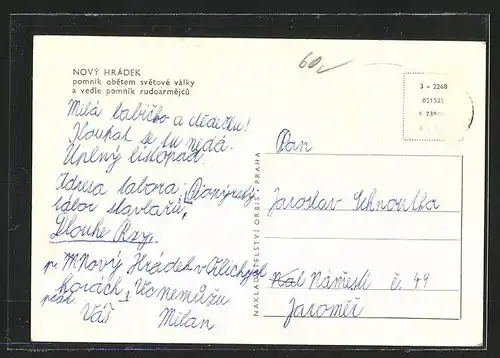 NOVÝ HRÁDEK
pomník obětem světové války
a vedle pomník rudoarmějců
60,-
3 - 2268
021521
Milá babičko a dědečku!
Koupat se tu nedá.
Úplný listopad...
Adresa tabora: Pionýrský
tábor stavlařů,
Dlouhé
p. Nový Hrádek v Orlických
horách. Víc nemůžu
psát. Váš Milan
NAKLADATELSTVÍ ORBIS PRAHA
Pan
Jaroslav
Náměstí č. 49
Jaroměř